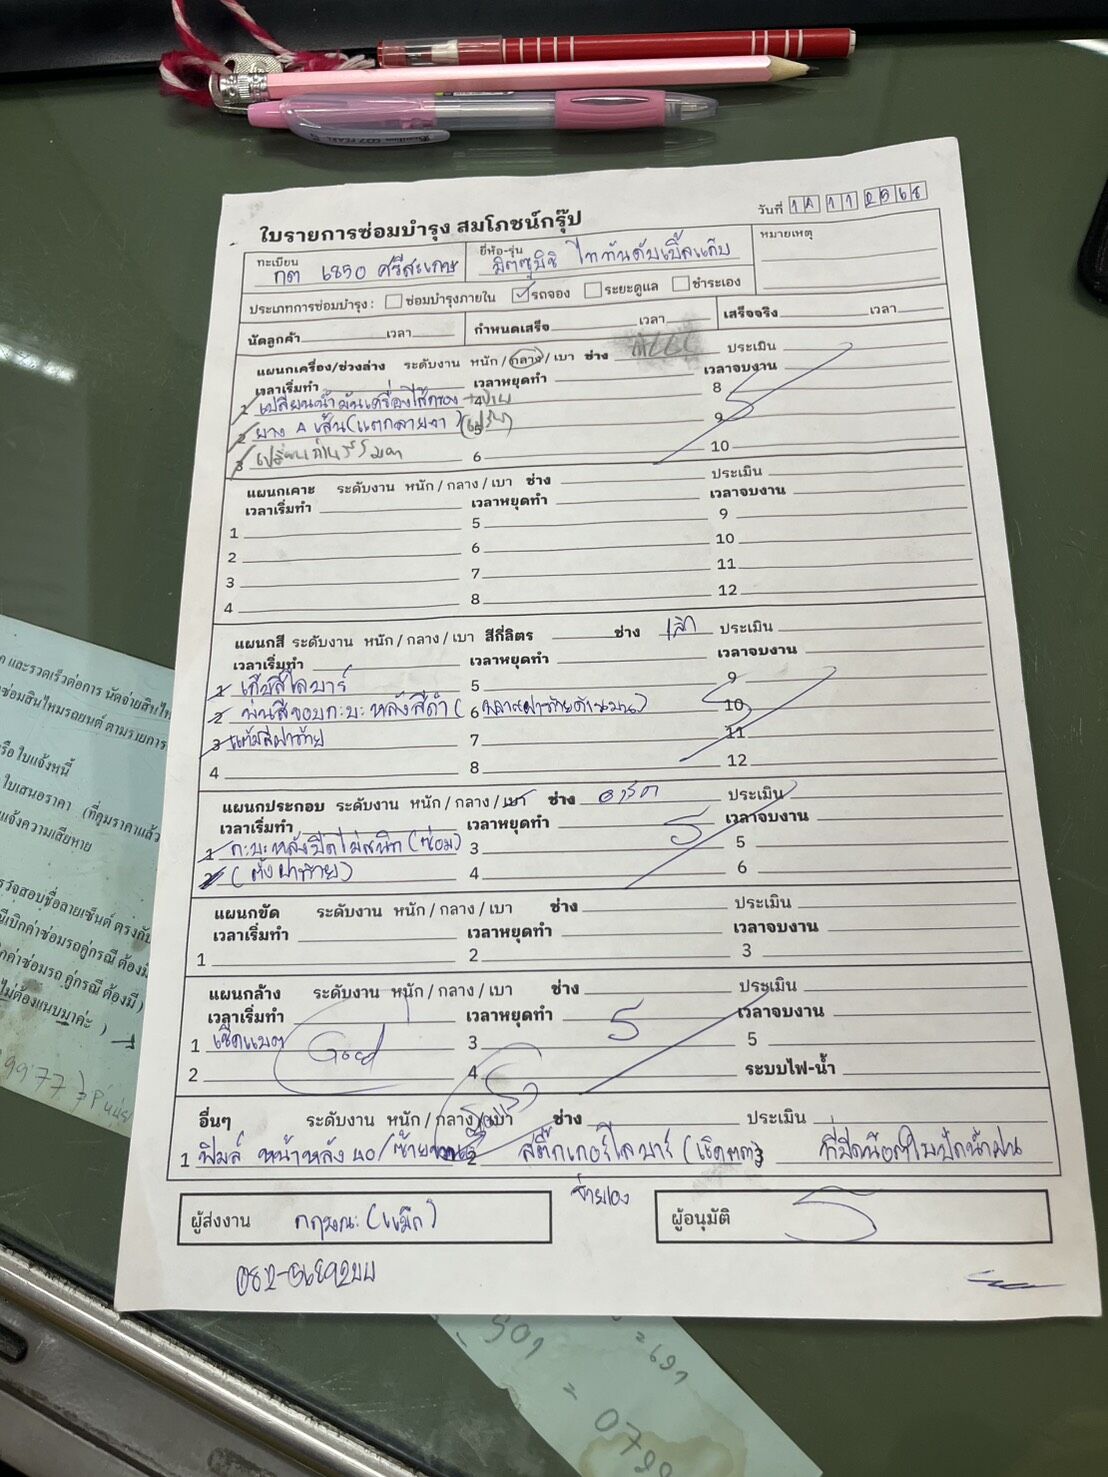 ใบรายการซ่อมบำรุง สมโภชน์กรุ๊ป
วันที่ 1 4 1 1 2 5 6 8
ทะเบียน กต 6850 ศรีสะเกษ
ยี่ห้อ-รุ่น มิตซูบิชิ ไททันดับเบิ้ลแค๊บ
หมายเหตุ
ประเภทการซ่อมบำรุง : ซ่อมบำรุงภายใน ✓ รถจอง ระยะดูแล ชำระเอง
นัดลูกค้า เวลา กำหนดเสร็จ เวลา เสร็จจริง เวลา
แผนกเครื่อง/ช่วงล่าง ระดับงาน หนัก / กลาง / เบา ช่าง ประเมิน
เวลาเริ่มทำ เวลาหยุดทำ เวลาจบงาน
1 เปลี่ยนน้ำมันเครื่องไส้กรอง 4 8
2 ยาง 4 เส้น (แตกลายงา) 5 9
3 6 10
แผนกเคาะ ระดับงาน หนัก / กลาง / เบา ช่าง ประเมิน
เวลาเริ่มทำ เวลาหยุดทำ เวลาจบงาน
1 5 9
2 6 10
3 7 11
4 8 12
แผนกสี ระดับงาน หนัก / กลาง / เบา สีกี่ลิตร ช่าง เล็ก ประเมิน
เวลาเริ่มทำ เวลาหยุดทำ เวลาจบงาน
1 เก็บสีโลบาร์ 5 9
2 พ่นสีขอบกะบะหลังสีดำ ( 6 10
3 แต้มสีฝาท้าย 7 11
4 8 12
แผนกประกอบ ระดับงาน หนัก / กลาง / เบา ช่าง ประเมิน
เวลาเริ่มทำ เวลาหยุดทำ 5 เวลาจบงาน
1 กะบะหลังปิดไม่สนิท (ซ่อม) 3 5
2 (ตั้งฝาท้าย) 4 6
แผนกขัด ระดับงาน หนัก / กลาง / เบา ช่าง ประเมิน
เวลาเริ่มทำ เวลาหยุดทำ เวลาจบงาน
1 2 3
แผนกล้าง ระดับงาน หนัก / กลาง / เบา ช่าง ประเมิน
เวลาเริ่มทำ เวลาหยุดทำ 5 เวลาจบงาน
1 เช็คแบต Good 3 5
2 4 ระบบไฟ-น้ำ
อื่นๆ ระดับงาน หนัก / กลาง / เบา ช่าง ประเมิน
1 ฟิมล์ หน้าหลัง 40/ซ้าย 2 สติ๊กเกอร์โลบาร์ 3 ที่ปิดน๊อตใบปัดน้ำฝน
จ่ายเอง
ผู้ส่งงาน กฤษณะ (แม็ก)
ผู้อนุมัติ
และรวดเร็วต่อการ นัดจ่ายสินไห
ซ่อมสินไหมรถยนต์ ตามรายการ
รือ ใบแจ้งหนี้
ใบเสนอราคา (ที่คุมราคาแล้ว
แจ้งความเสียหาย
รวจสอบชื่อลายเซ็นต์ ตรงกับ
ณีเบิกค่าซ่อมรถคู่กรณี ต้องมี
กค่าซ่อมรถ คู่กรณี ต้องมี )
ไม่ต้องแนบมาค่ะ )
9977